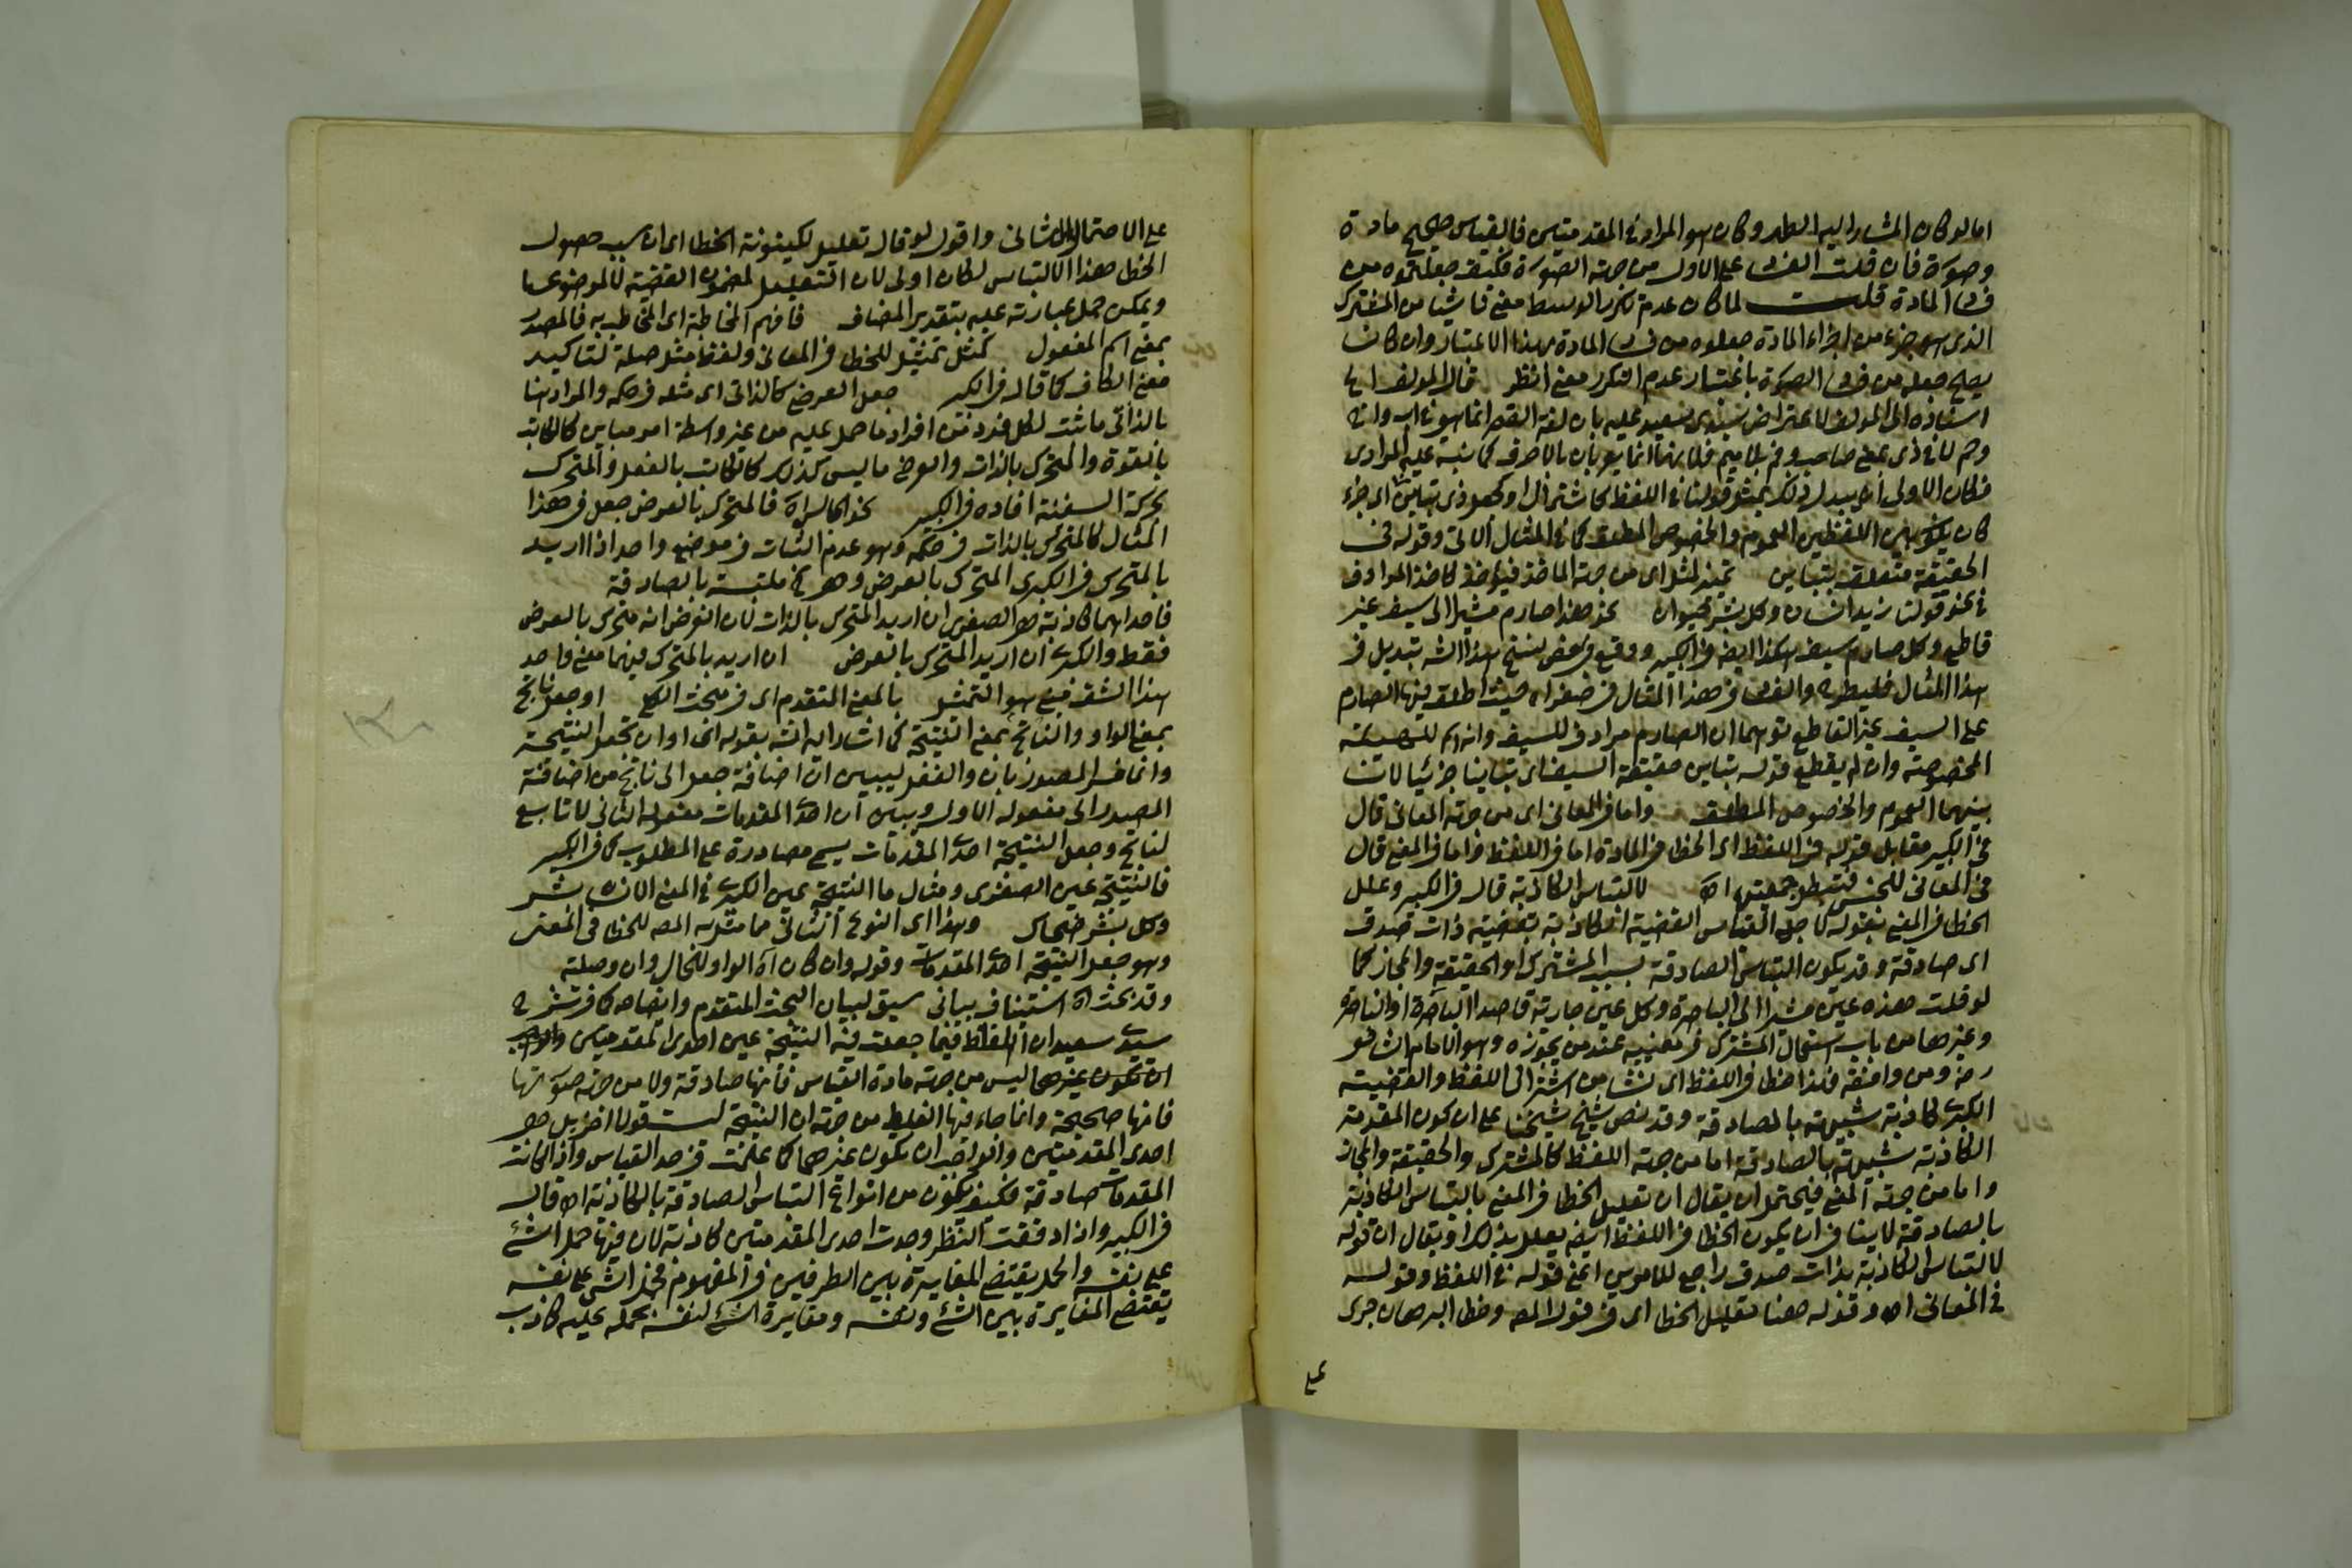 اما لو كان المشار اليه الطهر وكان هو المراد في المقدمتين فالقياس صحيح مادة
وصورة فان قلت الفساد على الاول من جهة الصورة فكيف جعلتموه من
فساد المادة قلت لما كان عدم تكرر الوسط معنى ناشيا من المشترك
الذي هو جزء من اجزاء المادة جعلوه من فساد المادة بهذا الاعتبار وان كان
يصلح جعله من فساد الصورة باعتبار عدم التكرر معنى انظر قال المولف
استاذه الى المولف لاعتراض سيدي سعيد عليه بان لغة القصر انما هو في اب واخ
وحم لا في ذي بمعنى صاحب وفم بلا ميم فانهما انما يعربان بالاحرف كما نبه عليه المرادي
فكان الاولى ان يبدل ذلك بمثل قولنا في اللفظ كاشتراك او كجعل ذي تباين اي جزء
كان يكون بين اللفظين العموم والخصوص المطلق كما في المثال الاتي وقوله في
الحقيقة متعلق بتباين تمييز لمثل اي من جهة الماخذ فيؤخذ كاخذ المرادف
في نحو قولنا زيد انسان وكل بشر حيوان نحو هذا صارم مشيرا الى سيف غير
قاطع وكل صارم سيف هكذا ايضا في الكبير ووقع في بعض نسخ هذا الشرح تبديل في
هذا المثال والفساد في هذا المثال في صغراه حيث اطلق فيها الصارم
على السيف غير القاطع توهما ان الصارم مرادف للسيف وانه اسم للهيئة
المخصوصة وان لم يقطع قوله بتباين حقيقة السيف اي تباينا جزئيا لان
بينهما العموم والخصوص المطلق واما في المعاني اي من جهة المعاني قال
في الكبير مقابل قوله في اللفظ اي الخطا في المادة اما في اللفظ واما في المعنى قال
في المعاني للجنس فتبطل جمعيته اه لالتباس الكاذبة قال في الكبير وعلل
الخطا في المعنى بقوله لاجل التباس القضية الكاذبة بقضية ذات صدق
اي صادقة وقد يكون التباس الصادقة بسبب المشترك او الحقيقة والمجاز كما
لو قلت هذه عين مشيرا الى الباصرة وكل عين جارية قاصدا الباصرة او الناظرة
وغيرها من باب استعمال المشترك في معنييه عند من يجوزه وهو الامام الشافعي
رضه ومن وافقه فهذا خطا في اللفظ اي نشا من اشتراك اللفظ والقضية
الكبرى كاذبة شبيهة بالصادقة وقد نص شيخ شيخنا على ان كون المقدمة
الكاذبة شبيهة بالصادقة اما من جهة اللفظ كالمشترك والحقيقة والمجاز
واما من جهة المعنى فيحتمل ان يقال ان تعليل الخطا في المعنى بالتباس الكاذبة
بالصادقة لا ينافي ان يكون الخطا في اللفظ ايضا يعلل بذلك او يقال ان قوله
لالتباس الكاذبة بذات صدق راجع للامرين اعني قوله في اللفظ وقوله
في المعاني اه وقوله هنا تعليل الخطا اي في قول المصه وخطا البرهان جرى
على
على الاحتمال الثاني واقول لو قال تعليل لكينونة الخطا اي ان سبب حصول
الخطا هذا الالتباس لكان اولى لان التعليل لمضمون القضية لا لموضوعها
ويمكن حمل عبارته عليه بتقدير المضاف فافهم المخاطبة اي المخاطب به فالمصدر
بمعنى اسم المفعول كمثل تمثيل للخطا في المعاني ولفظ مثل صلة لتاكيد
معنى الكاف كما قاله في الكبير جعل العرضي كالذاتي اي مثله في حكمه والمراد هنا
بالذاتي ما ثبت لكل فرد من افراد ما حمل عليه من غير واسطة امر مباين كالكاتب
بالقوة والمتحرك بالذات والعرضي ما ليس كذلك كالكاتب بالفعل والمتحرك
بحركة السفينة افاده في الكبير نحو الجالس اه فالمتحرك بالعرض جعل في هذا
المثال كالمتحرك بالذات في حكمه وهو عدم الثبات في موضع واحد اذا اريد
بالمتحرك في الكبرى المتحرك بالعرض وهي ملتبسة بالصادقة
فاحداهما كاذبة هو الصغرى ان اريد المتحرك بالذات لان الفرض انه متحرك بالعرض
فقط والكبرى ان اريد المتحرك بالعرض ان اريد بالمتحرك فيهما معنى واحد
هذا الشق فيه هو التمثيل بالمعنى المتقدم اي في مبحث الكلي او جعل ناتج
بمعنى الواو والناتج بمعنى النتيجة كما اشار اليه الشه بقوله اي او ان تجعل النتيجة
وانما فسر المصدر بان والفعل ليبين ان اضافة جعل الى ناتج من اضافة
المصدر الى مفعوله الاول ويبين ان احد المقدمات مفعوله الثاني لا تابع
لناتج وجعل النتيجة احدى المقدمات يسمى مصادرة على المطلوب كما في الكبير
فالنتيجة عين الصغرى ومثال ما النتيجة عين الكبرى في المعنى الانسان بشر
وكل بشر ضحاك وهذا اي النوع الثاني مما مثل به المصه للخطا في المعنى
وهو جعل النتيجة احد المقدمات وقوله وان كان اه الواو للحال وان وصلية
وقد بحث اه استيناف بياني سيق لبيان البحث المتقدم وايضاحه كما في شرح
سيدي سعيد ان الغلط فيما جعلت فيه النتيجة عين احدى المقدمتين والواجب
ان تكون غيرهما ليس من جهة مادة القياس فانها صادقة ولا من جهة صورتها
فانها صحيحة وانما جاء فيها الغلط من جهة ان النتيجة ليست قولا اخر بل هو
احدى المقدمتين والواجب ان يكون غيرهما كما علمت في حد القياس واذا كانت
المقدمات صادقة فكيف يكون من انواع التباس الصادقة بالكاذبة اه قال
في الكبير واذا دققت النظر وجدت احدى المقدمتين كاذبة لان فيها حمل الشئ
على نفسه والحمل يقتضي المغايرة بين الطرفين في المفهوم فحمل الشئ على نفسه
يقتضي المغايرة بين الشئ ونفسه ومغايرة الشئ لنفسه بحمله عليه كاذب